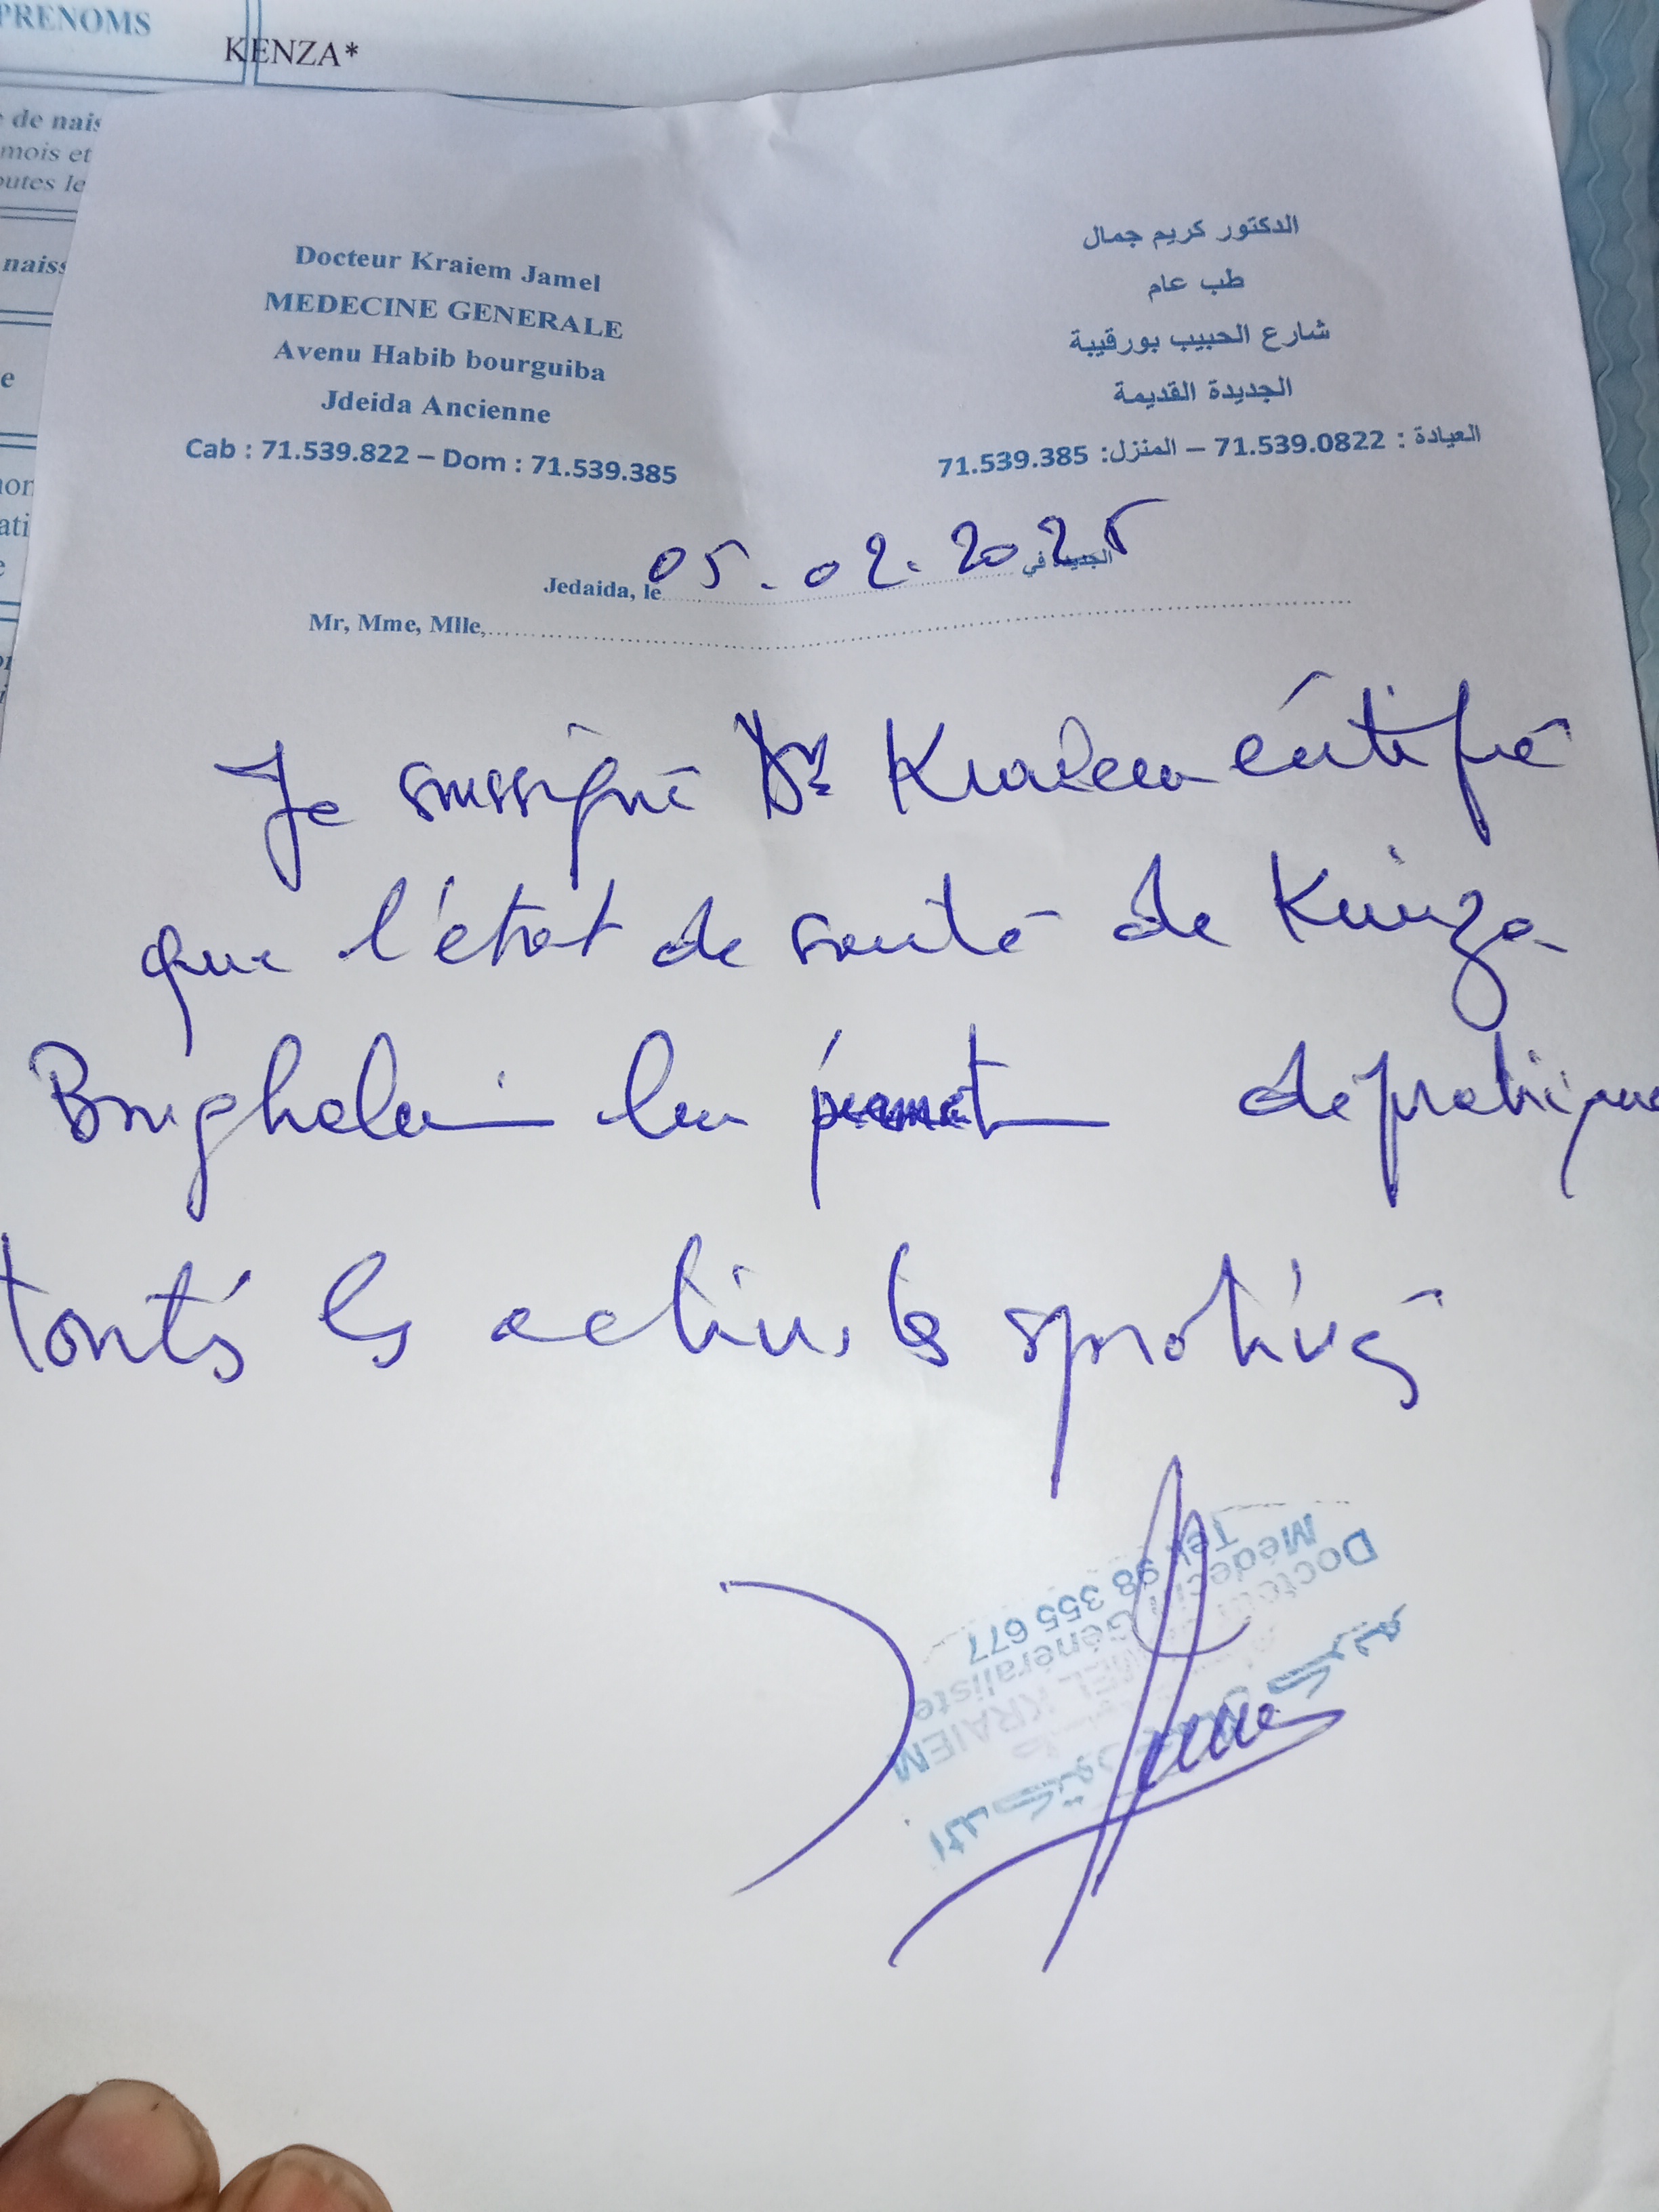 PRENOMS
KENZA*
de nais
mois et
outes le
naiss
Docteur Kraiem Jamel
MEDECINE GENERALE
Avenu Habib bourguiba
Jdeida Ancienne
Cab : 71.539.822 – Dom : 71.539.385
الدكتور كريم جمال
طب عام
شارع الحبيب بورقيبة
الجديدة القديمة
العيادة : 71.539.0822 – المنزل: 71.539.385
Jedaida, le 05.02.2025 الجديدة في
Mr, Mme, Mlle,
Je soussigné Dr Kraiem certifie
que l'état de santé de Kinza
lui permet de pratique
touts les activités sportives
الدكتور كريم
Docteur JAMEL KRAIEM
Médecin Généraliste
Tel: 98 355 677